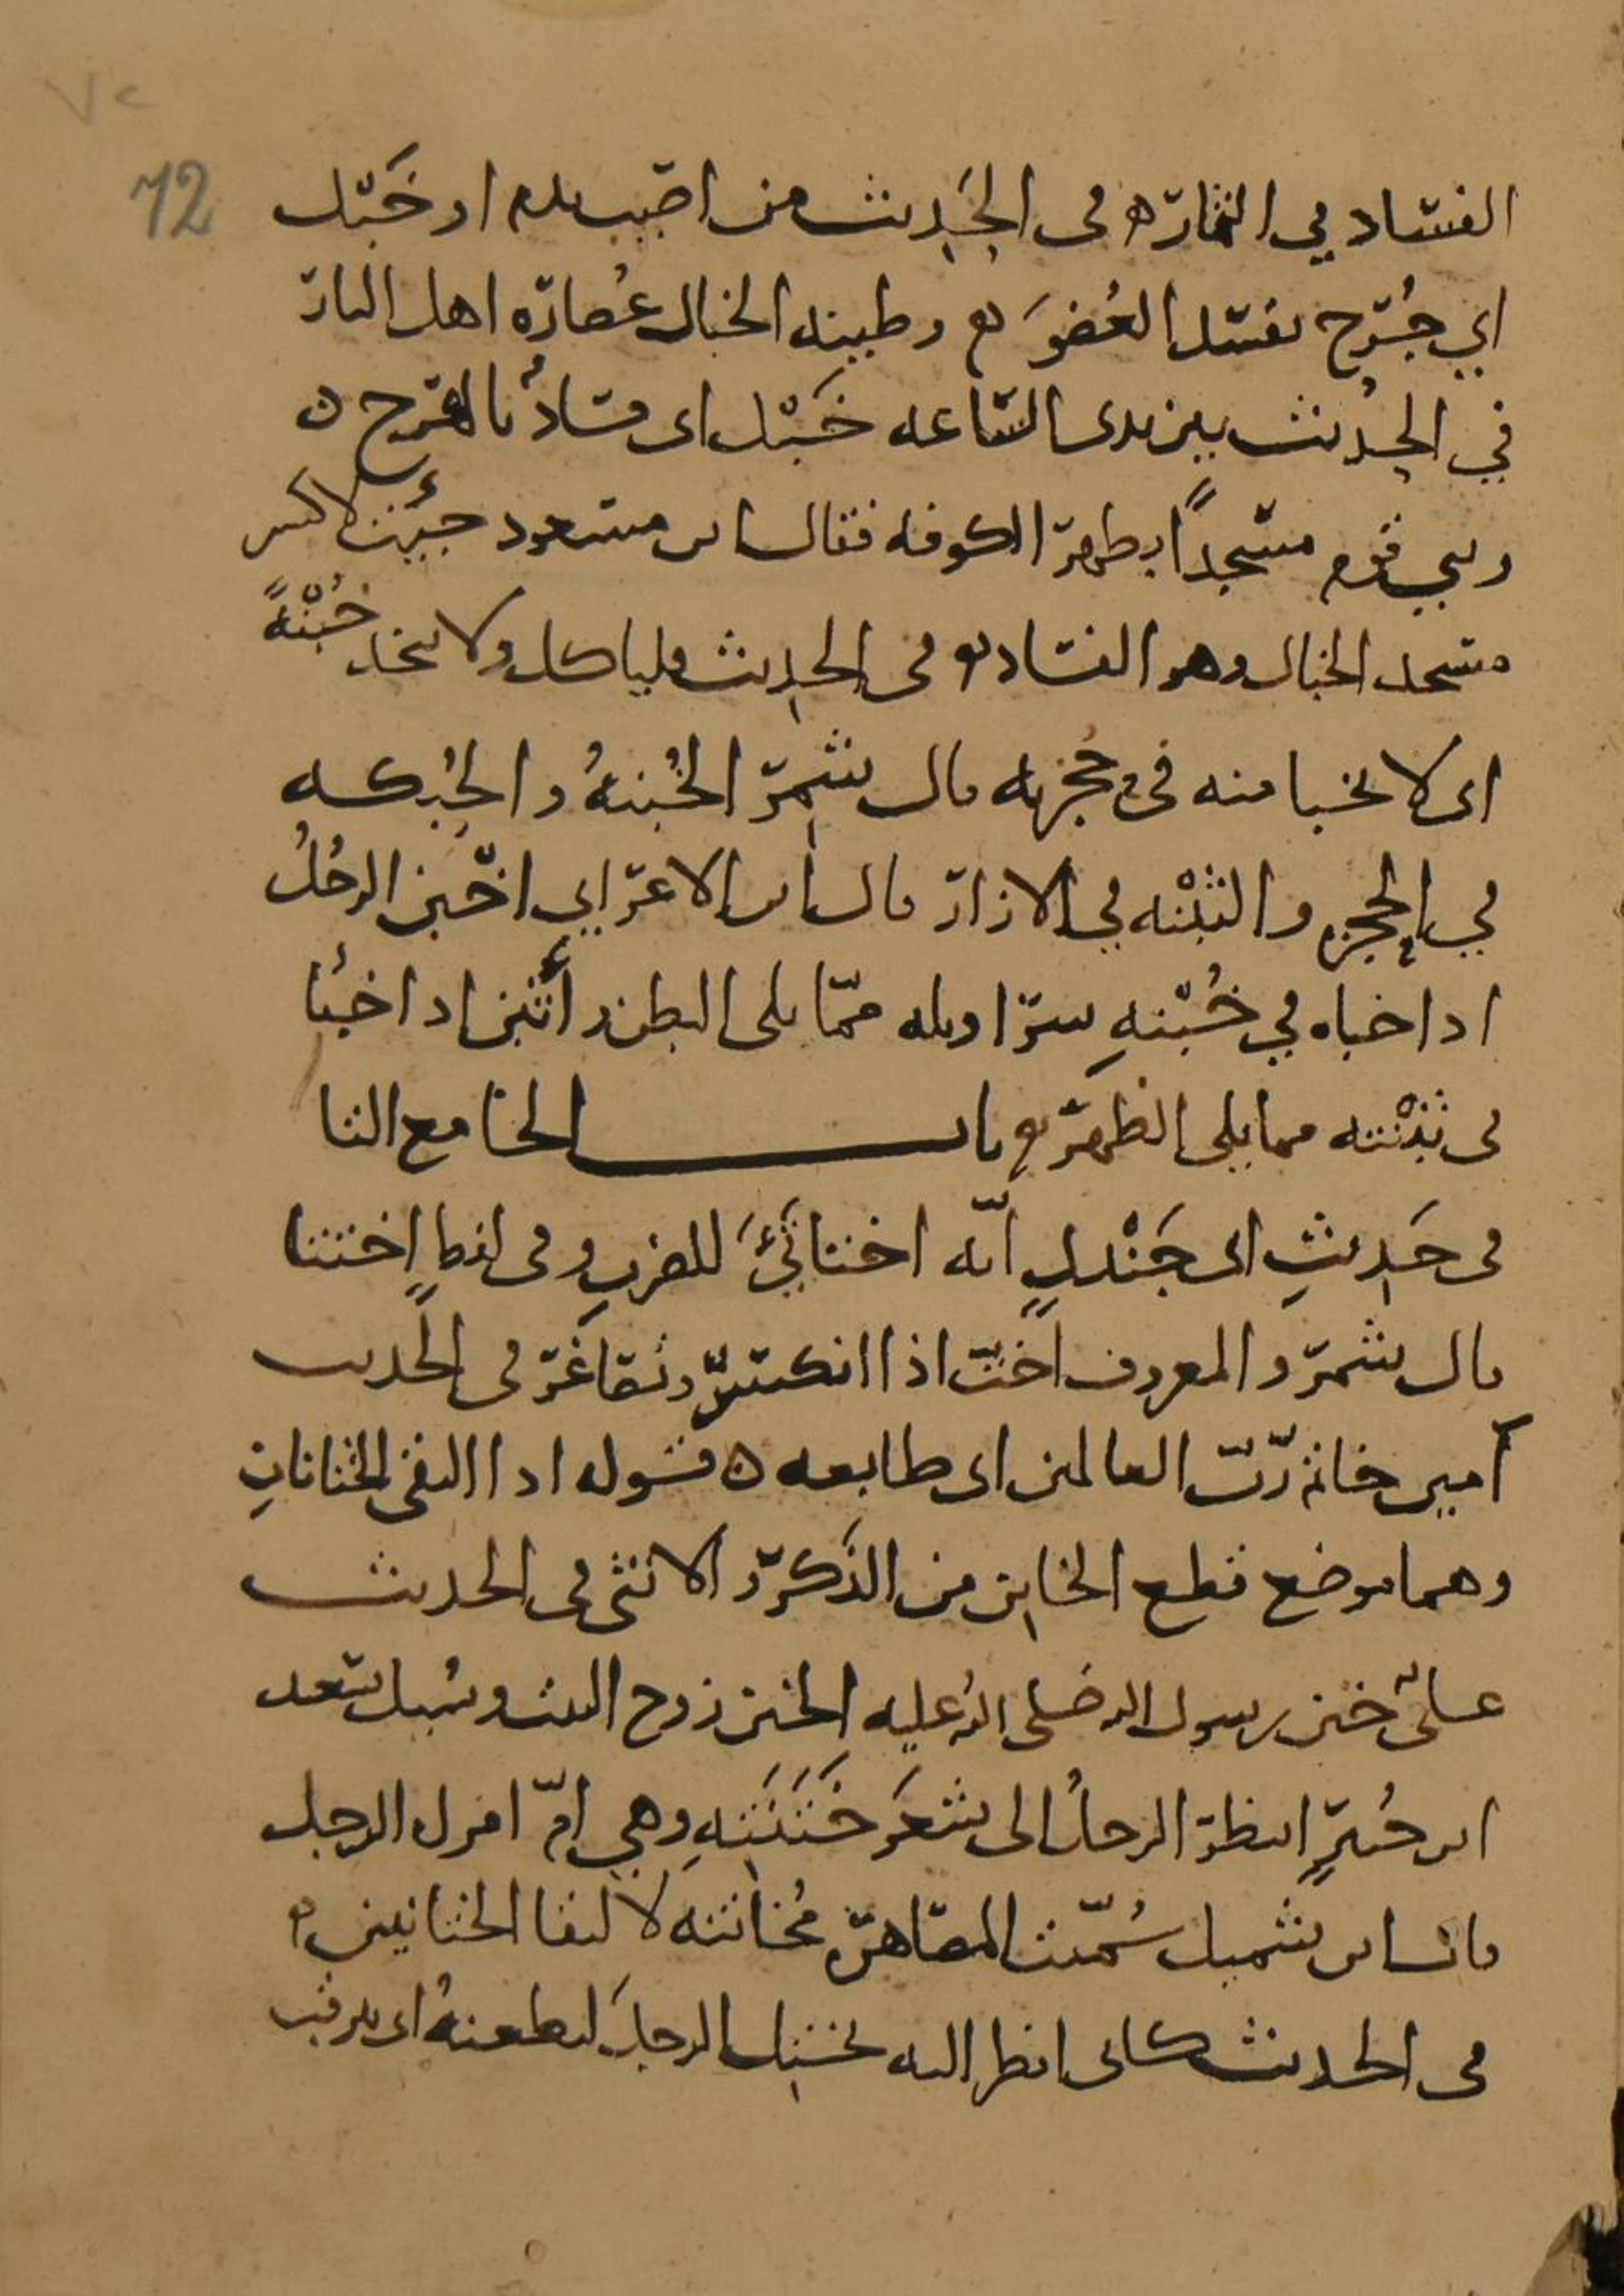 ٧٢
72
الفساد في الثمار في الحديث من اصيب بدم او خَبْل
اي جُرح يفسد العُضوَ وطينه الخبال عُصارَه اهل النار
في الحديث بين يدى الساعه خَبْل اى فسادٌ بالهرج
وبنى قوم مسجدًا بظهر الكوفه فقال ابن مسعود جئت لاكسر
مسجد الخبال وهو الفساد في الحديث فلياكل ولا يتخذ خُبْنَةً
اى لا يخبا منه في حُجزته قال شَمِر الخُبنةُ والحُبكه
في الحجزه والثبْنه في الازار قال ابن الاعرابي اخبن الرجُلُ
اذا خباه في خُبْنةِ سراويله ممّا يلى البطن واثبن اذا خبأ
في ثبْنته مما يلى الظهر باب الخا مع التا
في حَدِيثِ ابى جَنْدلٍ انّه اختاتَئَ للضرب وفي لفظٍ اختتا
قال شمر والمعروف اختّ اذا انكسر وتصاغر في الحديث
آمين خاتم ربّ العالمين اى طابعه قوله اذا التقى الختانانِ
وهما موضع قطع الخاتن من الذَكر والانثى في الحديث
علىٌّ ختن رسول الله صلى الله عليه الختن زوج البنت وسُيل سعد
ابن جُبيرٍ اينظر الرجلُ الى شعَر خَتَنَتِهِ وهي امّ امراه الرجل
قال ابن شميل سُمّيت المصاهرَه مُخاتنه لالتقا الختانين
في الحديث كانى انظر اليه يختِل الرجلَ ليطعنهُ اى يرقب